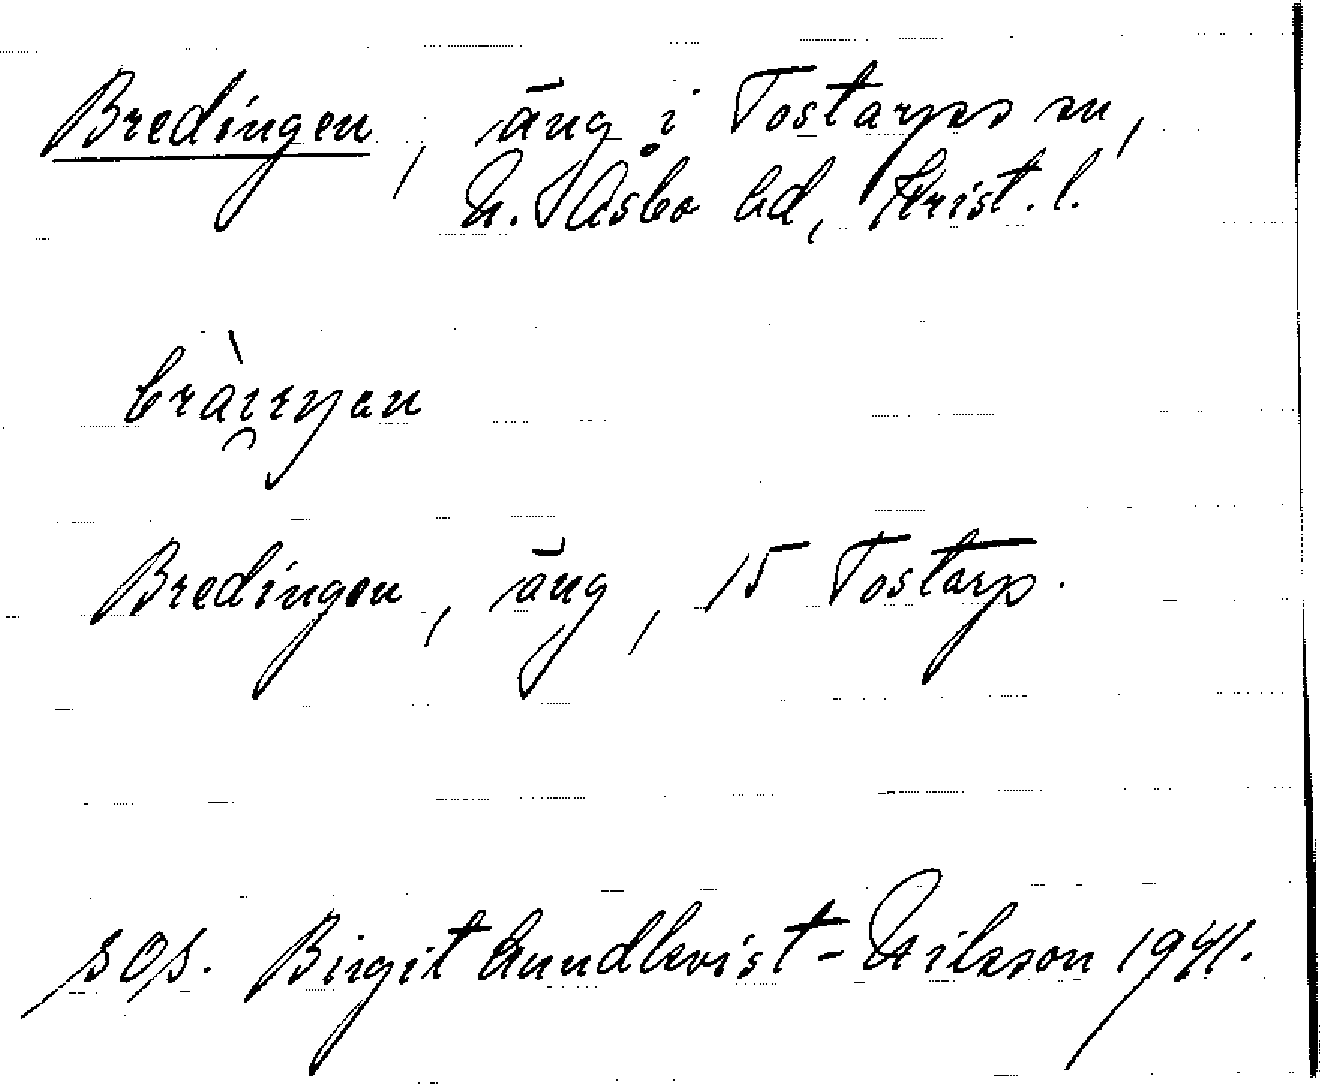 Bredingen, äng i Tostarps sn,
N. Åsbo hd, Krist. l.
Bredingen, äng, 15 Tostarp.
Birgit Lundkvist-Nilsson 1941.